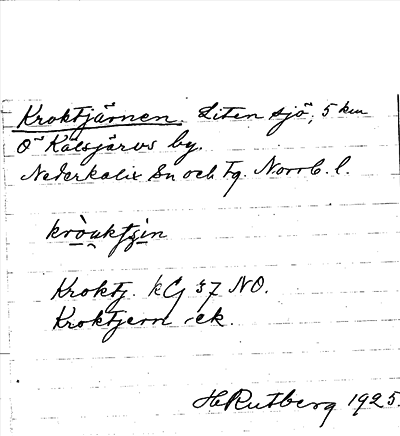 Kroktjärnen. Liten sjö, 5 km
Ö Kälsjärvs by.
Nederkalix Sn och Tg. Norrb. l.
kròuktʃin
Kroktj. kG 37 NO.
Kroktjern -ek.
H Rutberg 1925.